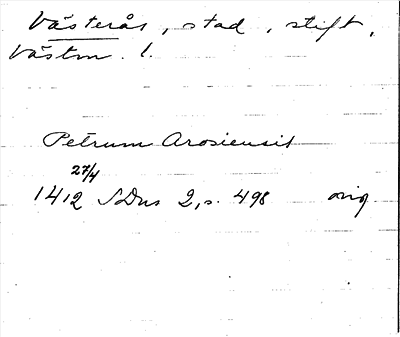 Västerås, stad, stift,
Västm. l.
Petrum Arosiensit
27/4
1412 SDns 2, s. 498 orig